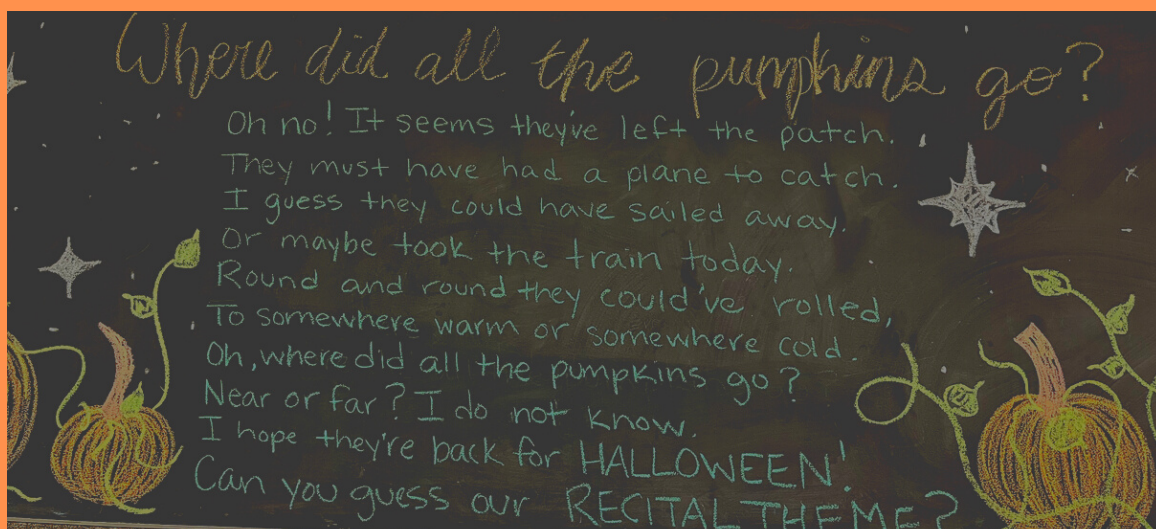 Where did all the pumpkins go?
Oh no! It seems they've left the patch.
They must have had a plane to catch.
I guess they could have sailed away.
Or maybe took the train today.
Round and round they could've rolled,
To somewhere warm or somewhere cold.
Oh, where did all the pumpkins go?
Near or far? I do not know.
I hope they're back for HALLOWEEN!
Can you guess our RECITAL THEME?